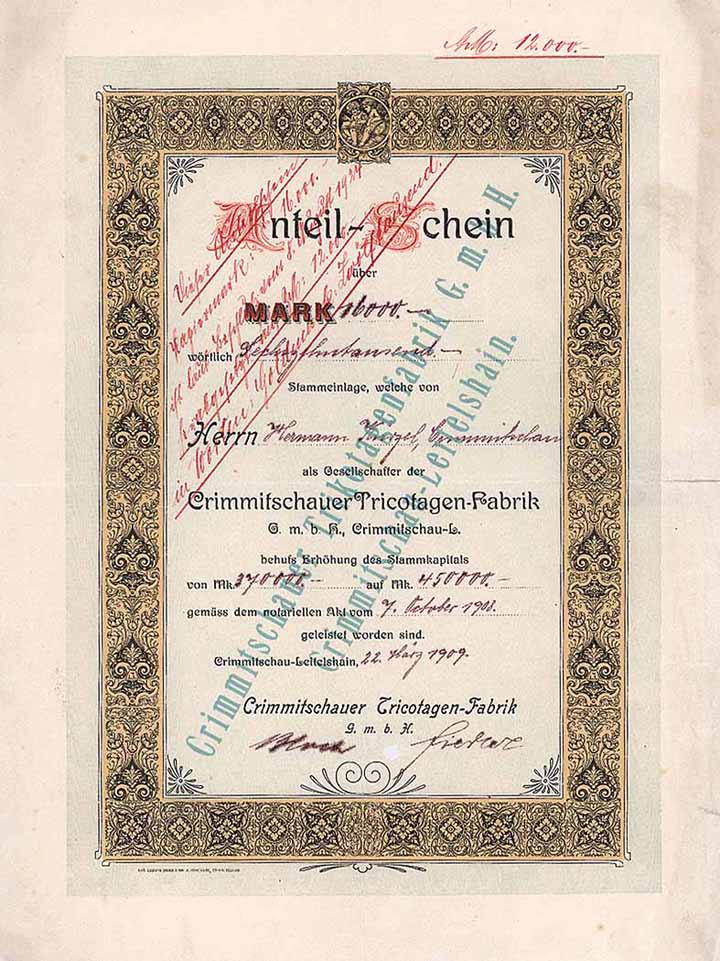 RM: 12.000.-
Anteil-Schein
über
MARK 16000.-
wörtlich Sechzehntausend -
Stammeinlage, welche von
Herrn Hermann Kürzel, Crimmitschau
als Gesellschafter der
Crimmitschauer Tricotagen-Fabrik
G. m. b. H., Crimmitschau-L.
behufs Erhöhung des Stammkapitals
von Mk. 370000.- auf Mk. 450000.-
gemäss dem notariellen Akt vom 7. October 1908.
geleistet worden sind.
Crimmitschau-Leitelshain, 22. März 1909.
Crimmitschauer Tricotagen-Fabrik
G. m. b. H.
Fiedler
Crimmitschauer Trikotagenfabrik G. m. b. H.
Crimmitschau-Leitelshain.
Dieser Anteilschein
Papiermark: 16.000.-
ist laut
in Worten: Goldmark: Zwölftausend.